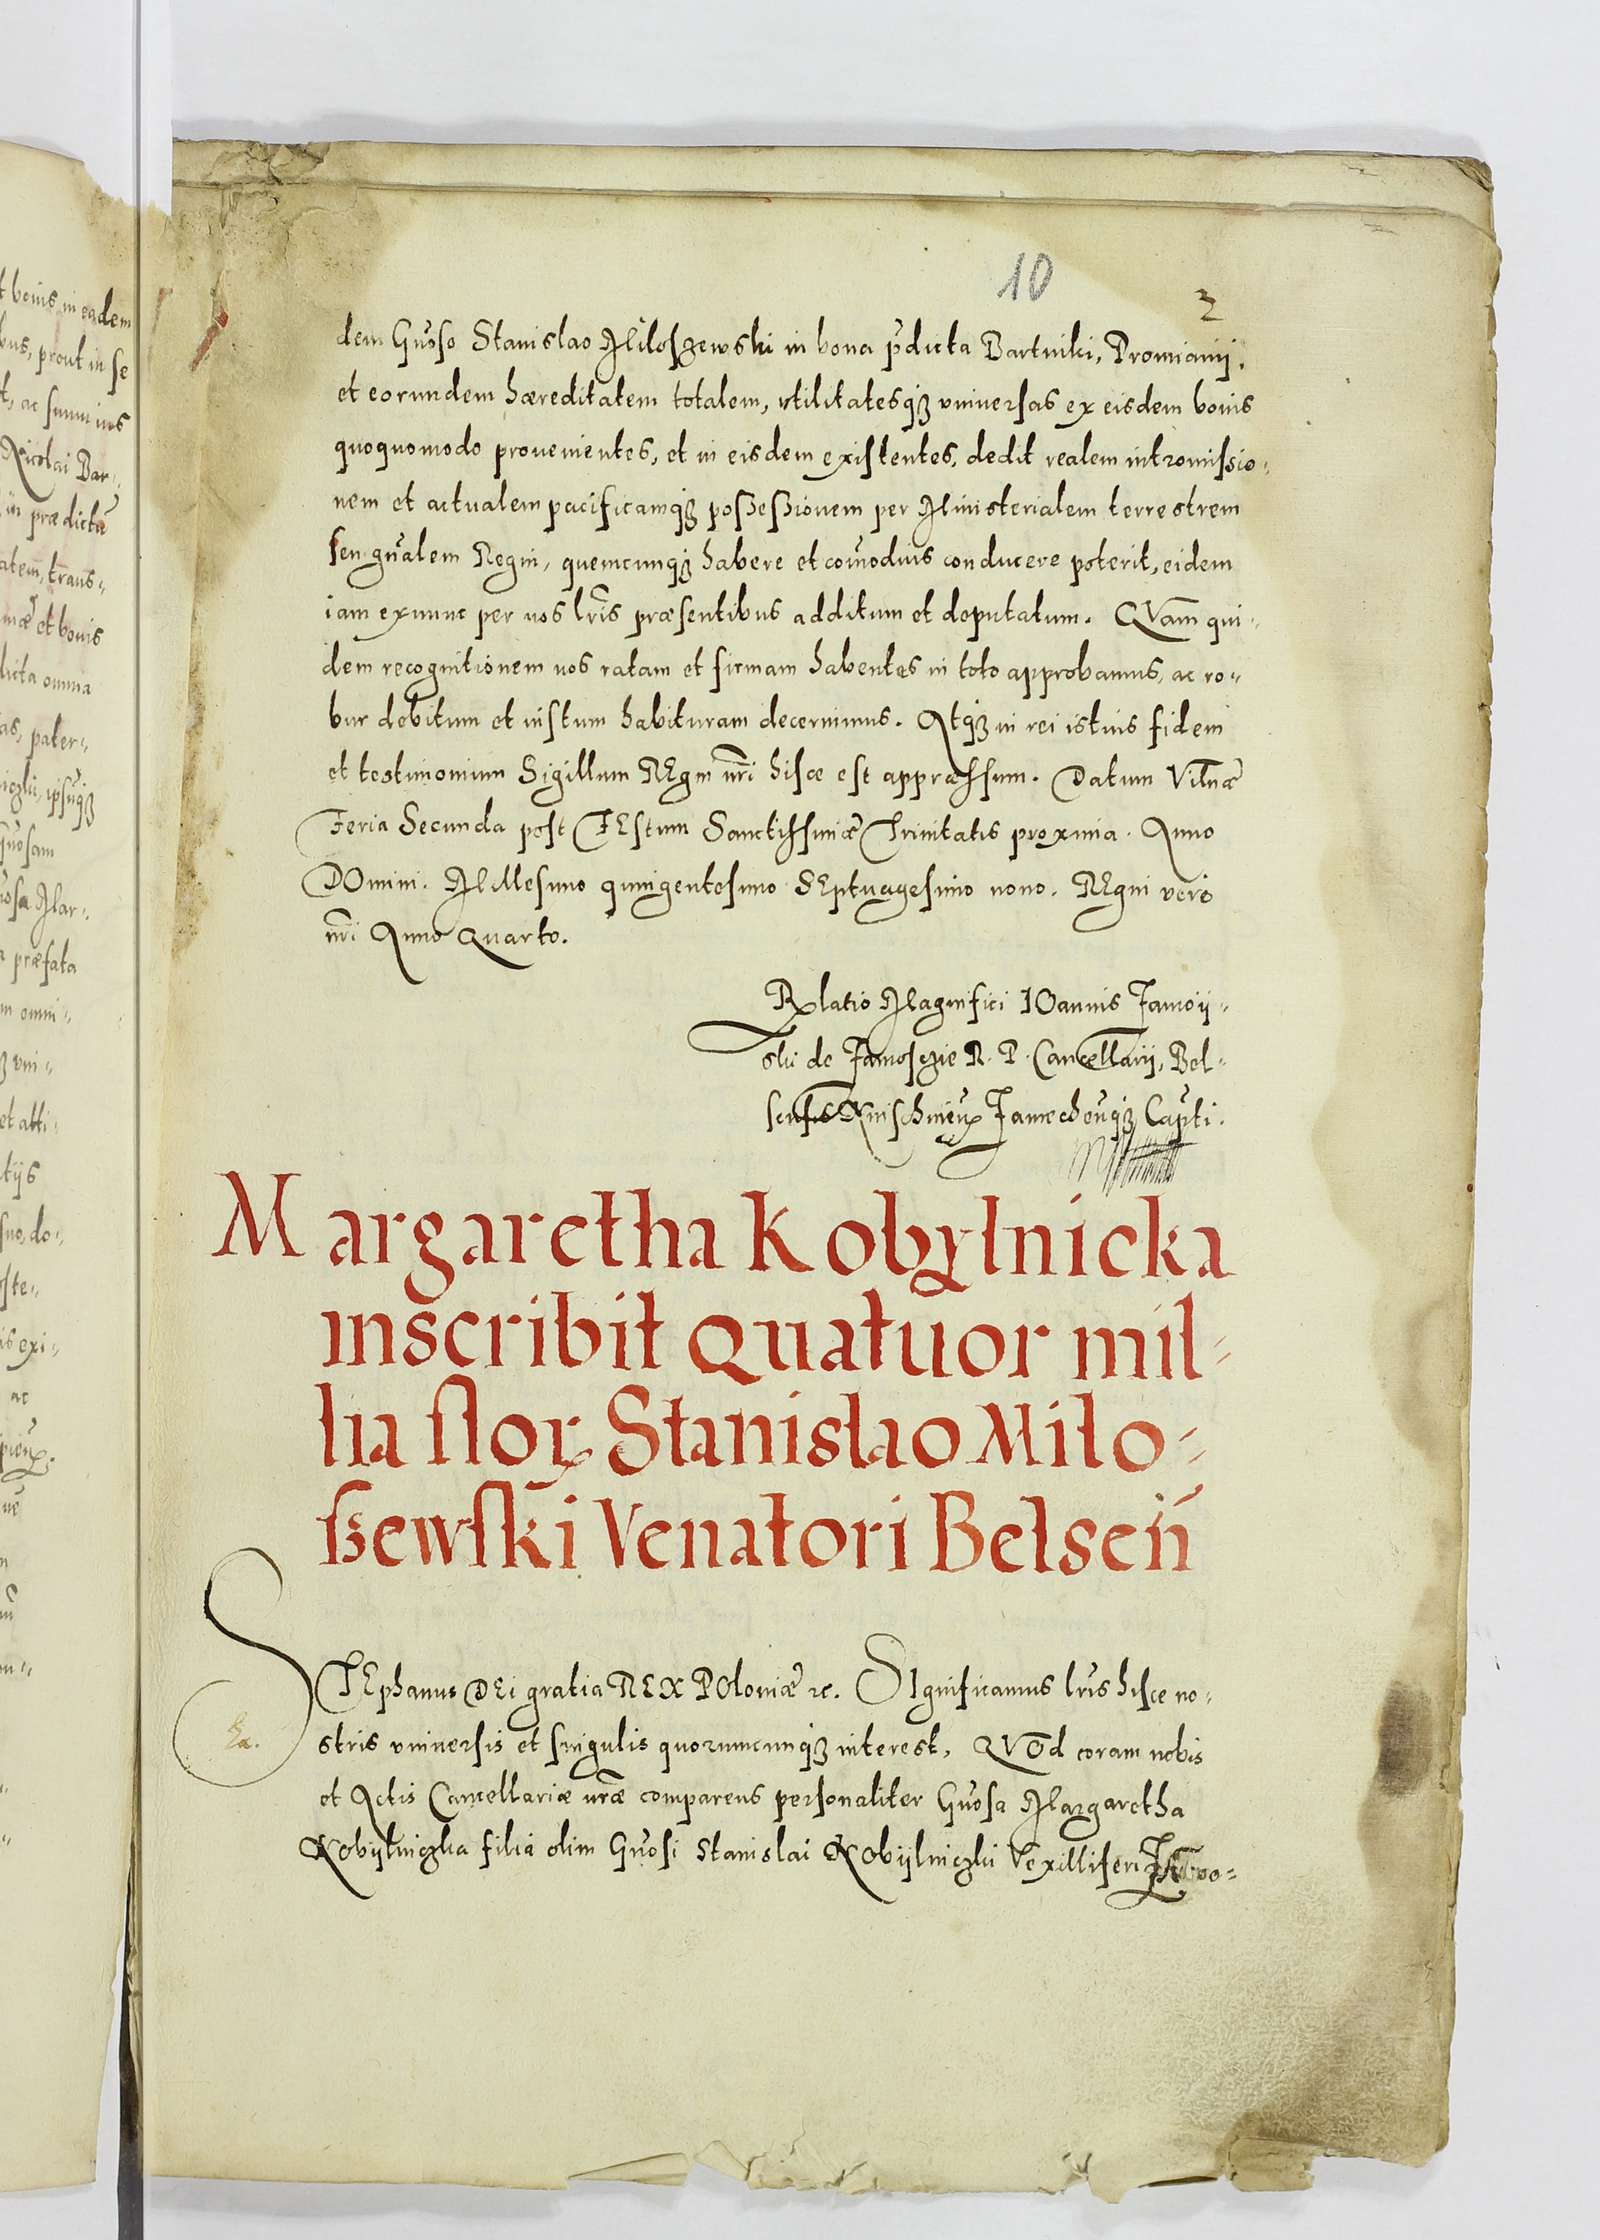 10
2
dem Gn̄oso Stanislao Miloszewski in bona p̄dicta Bartniki, Promianij,
et eorundem hæreditatem totalem, vtilitatesq́ꝫ vniuersas ex eisdem bonis
quoquomodo prouenientes, et in eisdem existentes, dedit realem intromissio-
nem et actualem pacificamq́ꝫ possessionem per Ministerialem terrestrem
seu gn̄alem Regni, quemcunq́ꝫ habere et com̄odius conducere poterit, eidem
iam exnunc per nos lr̄is præsentibus additum et deputatum. QVam qui-
dem recognitionem nos ratam et firmam habentes in toto approbamus, ac ro-
bur debitum et iustum habituram decernimus. Atq́ꝫ in rei istius fidem
et testimonium Sigillum REgni nr̄i hisce est appressum. Datum Vilnæ
Feria Secunda post FEstum Sanctissimæ Trinitatis proxima. Anno
DOmini. Millesimo quingentesimo SEptuagesimo nono. REgni vero
nr̄i Anno Quarto.
Relatio Magnifici IOannis Zamoij-
ski de Zamosczie R. P. Cancellarij, Bel-
sensis Knischineñ Zamechenq́ꝫ Capti.
Margaretha Kobylnicka
inscribit Quatuor mil-
lia floꝝ Stanislao Milo-
szewski Venatori Belseń
STEphanus DEi gratia REX POloniæ ꝛc. SIgnificamus lr̄is hisce no-
stris vniuersis et singulis quorumcunq́ꝫ interest, QVOd coram nobis
et Actis Cancellariæ nr̄æ comparens personaliter Gn̄osa Margaretha
Kobijlniczka filia olim Gn̄osi Stanislai Kobijlniczki Vexilliferi